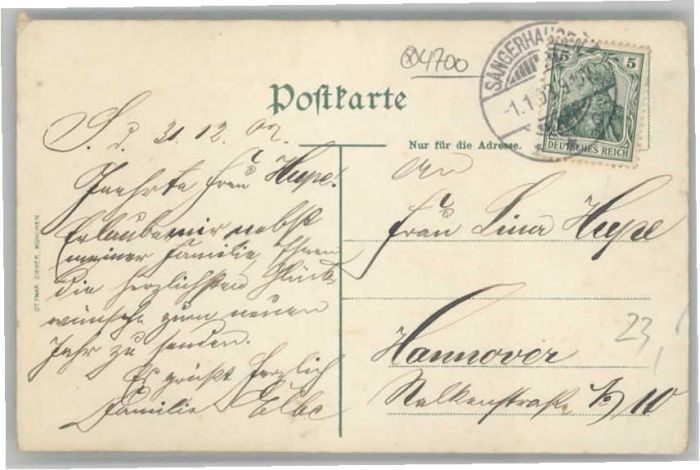 04700
SANGERHAUSEN
-1.1.
5 5
DEUTSCHES REICH
Postkarte
Nur für die Adresse.
S. d. 31.12.07.
Geehrte Frau Hupe!
Erlaube mir nebst
meiner Familie, Ihnen
die herzlichsten Glück-
wünsche zum neuen
Jahr zu senden.
Es grüßt herzlich
Familie Elbe
An
Frau Lina Hupe
Hannover
Nelkenstraße 10
23,
OTTMAR ZIEHER, MÜNCHEN